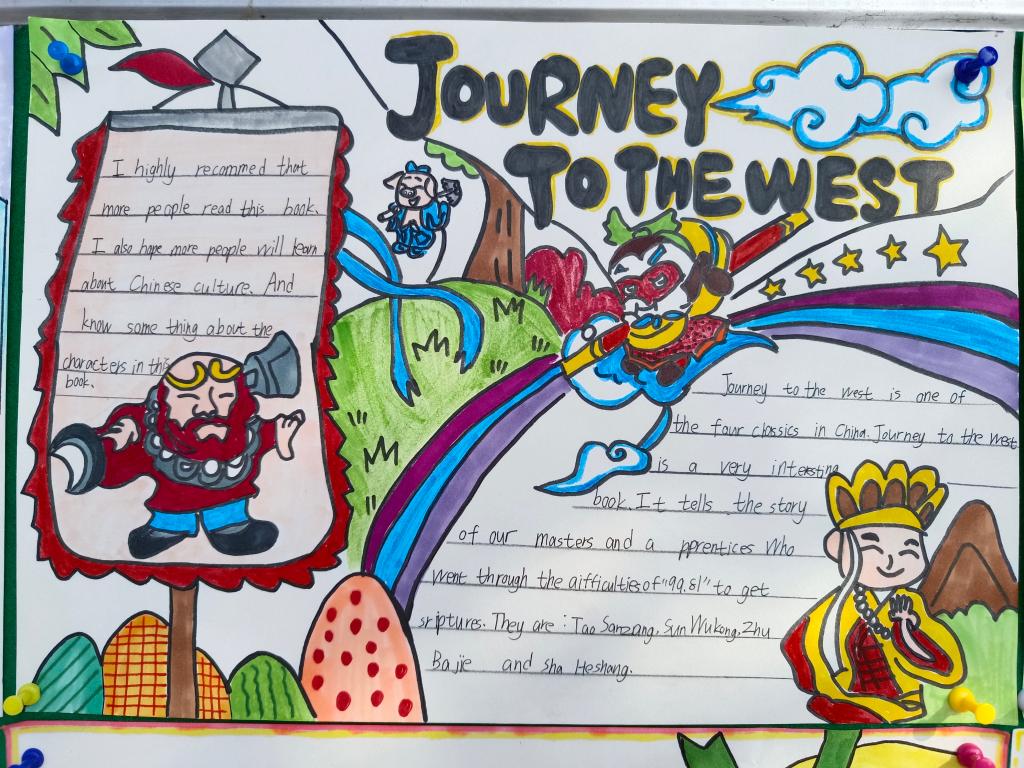 JOURNEY
TO THE WEST
I highly recommed that
more people read this book.
I also hope more people will learn
about Chinese culture. And
know some thing about the
characters in this
book.
Journey to the west is one of
the four classics in China. Journey to the west
is a very intesting
book. It tells the story
of our masters and a pprentices Who
went through the aifficulties of "99.81" to get
sriptures. They are : Tao Sanzang. Sun Wukong. Zhu
Bajie and sha Heshang.